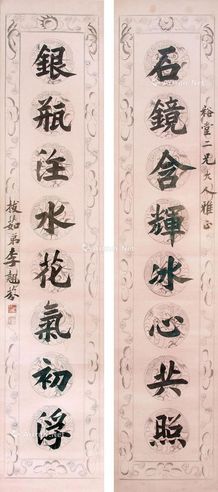 裕堂二兄大人雅正
石鏡含輝冰心共照
銀瓶注水花氣初浮
弟李